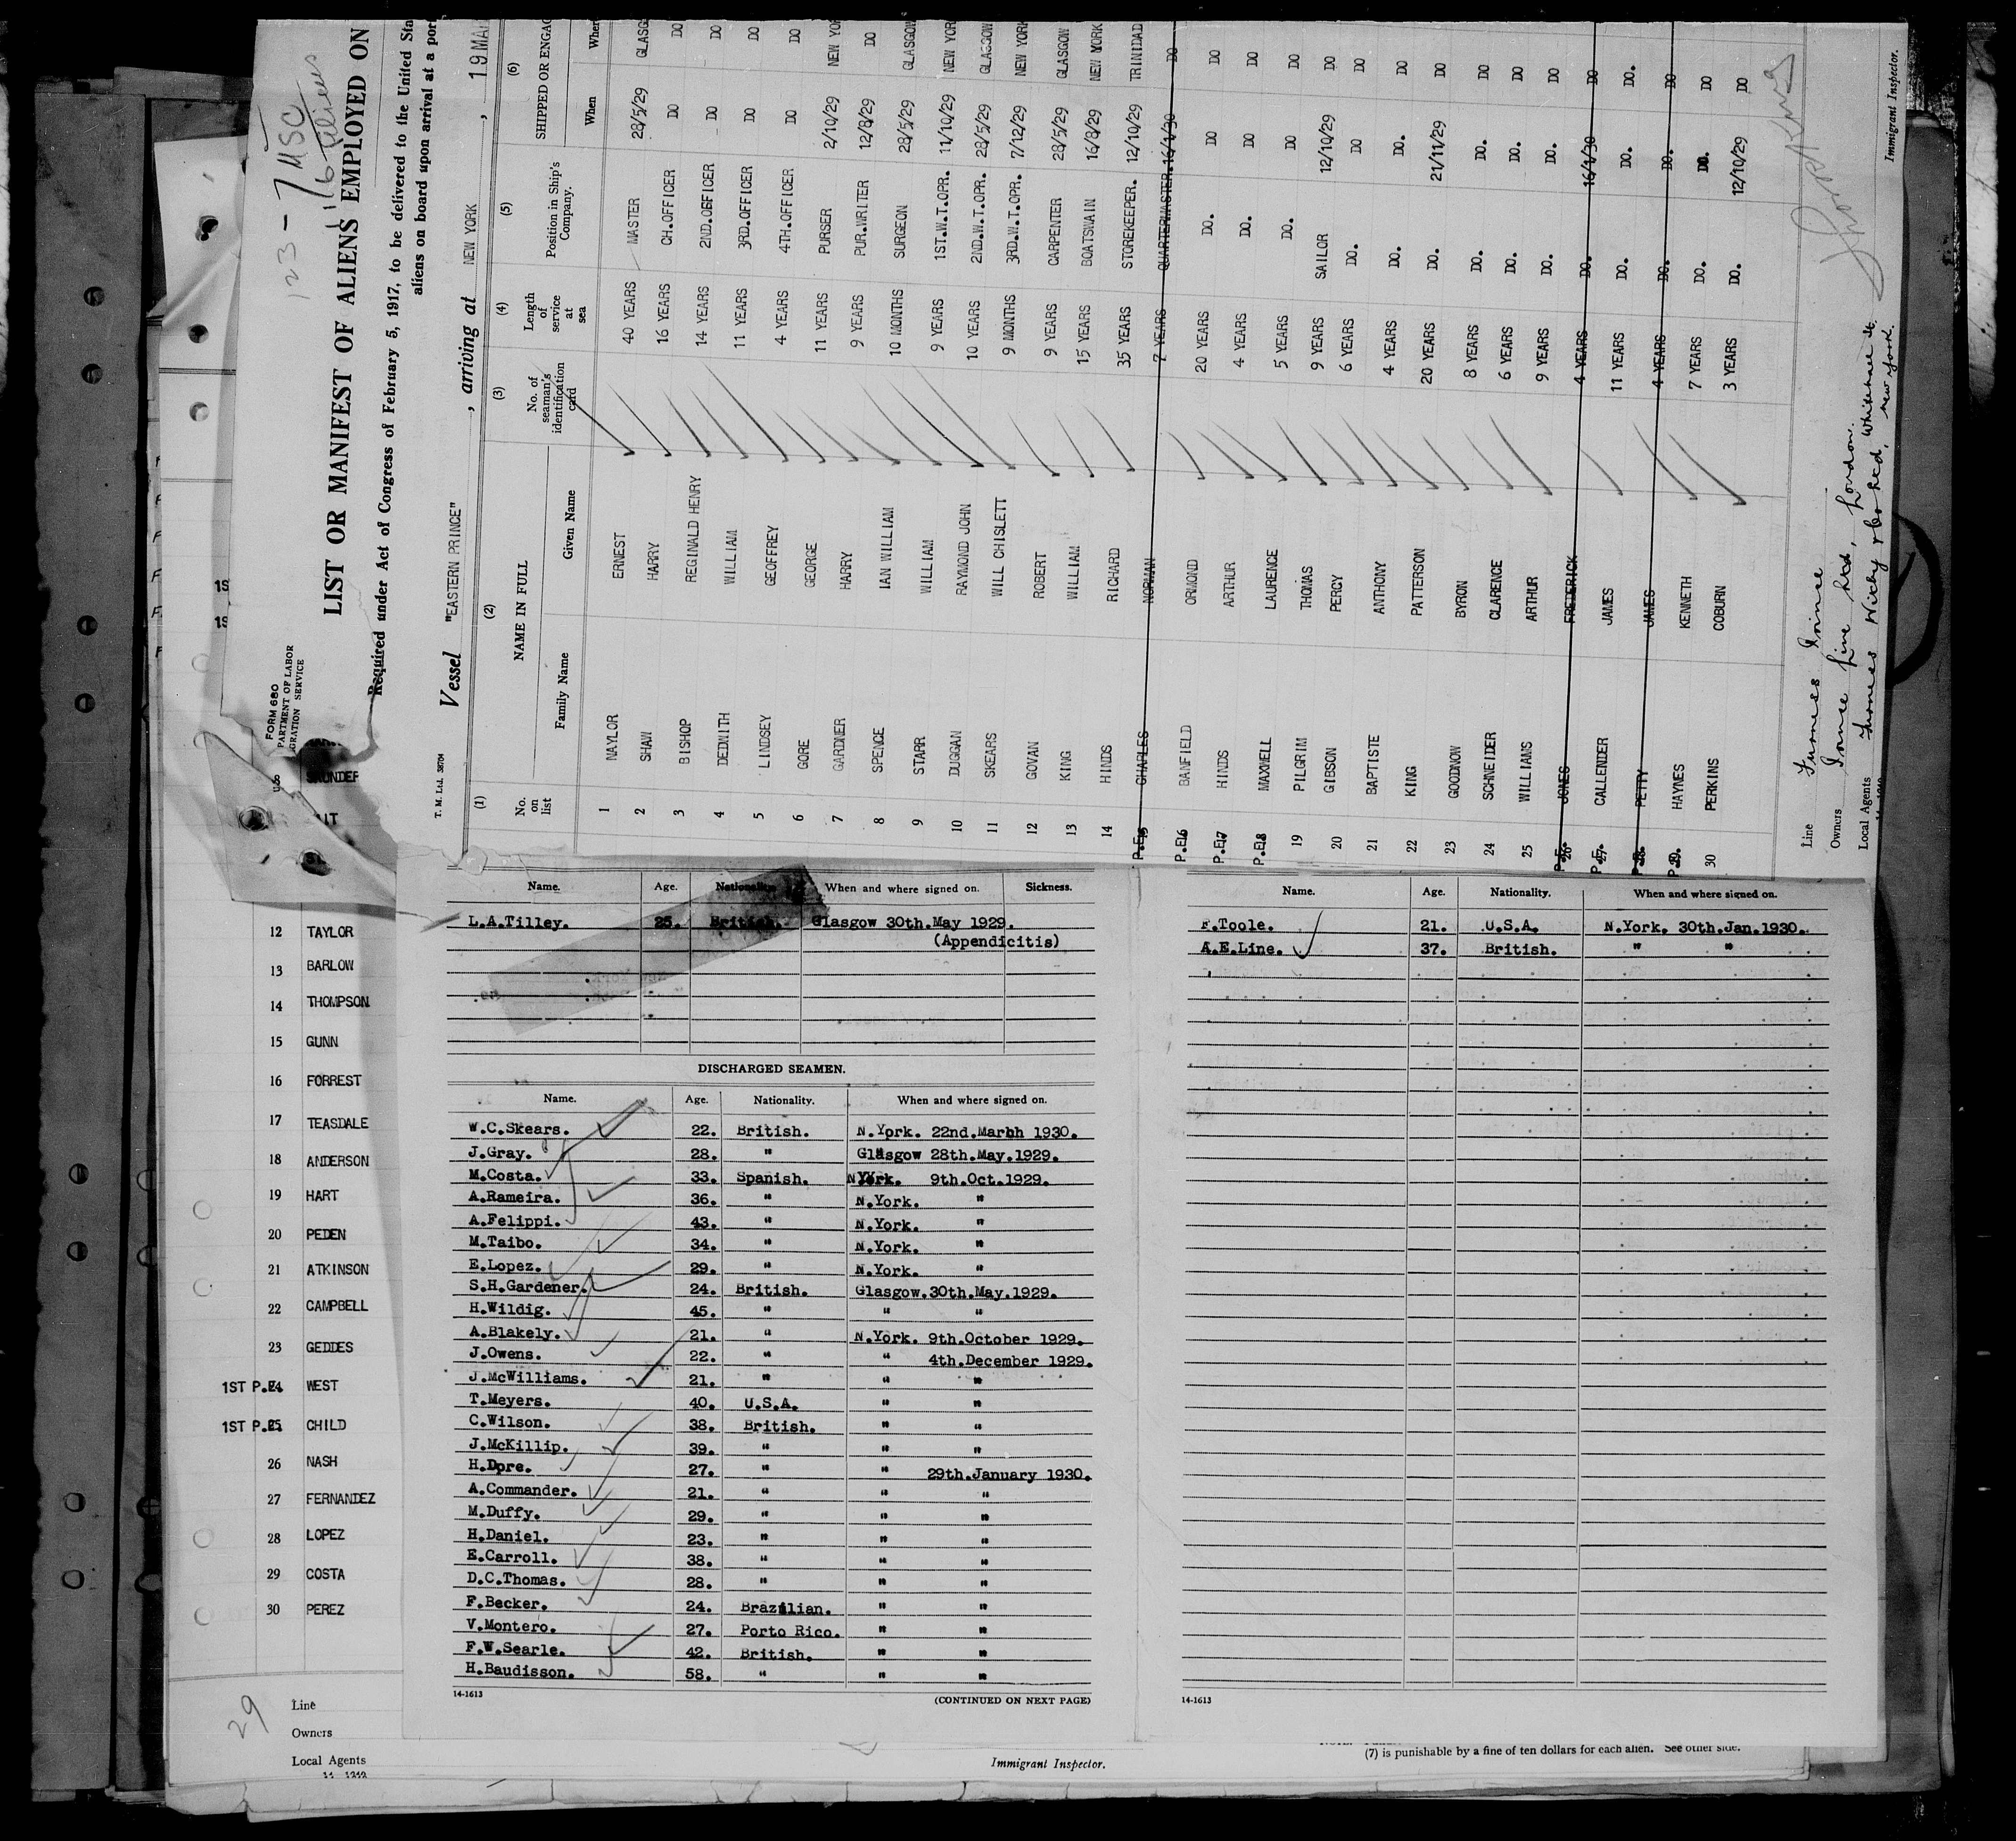 123 - 7 USC
16 Aliens
FORM 680
PARTMENT OF LABOR
GRATION SERVICE
LIST OR MANIFEST OF ALIENS EMPLOYED ON
Required under Act of Congress of February 5, 1917, to be delivered to the United Sta
aliens on board upon arrival at a por
Vessel "EASTERN PRINCE", arriving at NEW YORK, 19 MA
T. M. Ltd. 38704
(1) (2) (3) (4) (5) (6)
No. on list NAME IN FULL Family Name Given Name No. of seaman's identification card Length of service at sea Position in Ship's Company. SHIPPED OR ENGAG When Wher
1 NAYLOR ERNEST 40 YEARS MASTER 28/5/29 GLASG
2 SHAW HARRY 16 YEARS CH.OFFICER DO DO
3 BISHOP REGINALD HENRY 14 YEARS 2ND.OFFICER DO DO
4 DEDWITH WILLIAM 11 YEARS 3RD.OFFICER DO DO
5 LINDSEY GEOFFREY 4 YEARS 4TH.OFFICER DO DO
6 GORE GEORGE 11 YEARS PURSER 2/10/29 NEW YOR
7 GARDNER HARRY 9 YEARS PUR.WRITER 12/8/29 DO
8 SPENCE IAN WILLIAM 10 MONTHS SURGEON 28/5/29 GLASGOW
9 STARR WILLIAM 9 YEARS 1ST.W.T.OPR. 11/10/29 NEW YOR
10 DUGGAN RAYMOND JOHN 10 YEARS 2ND.W.T.OPR. 28/5/29 GLASGOW
11 SKEARS WILL CHISLETT 9 MONTHS 3RD.W.T.OPR. 7/12/29 NEW YORK
12 GOVAN ROBERT 9 YEARS CARPENTER 28/5/29 GLASGOW
13 KING WILLIAM 15 YEARS BOATSWAIN 16/8/29 NEW YORK
14 HINDS RICHARD 35 YEARS STOREKEEPER. 12/10/29 TRINIDAD
P.E. 15 CHARLES NORMAN 7 YEARS QUARTERMASTER. 16/1/30 DO
P.E. 16 BANFIELD ORMOND 20 YEARS DO. DO DO
P.E. 17 HINDS ARTHUR 4 YEARS DO. DO DO
P.E. 18 MAXWELL LAURENCE 5 YEARS DO. DO DO
19 PILGRIM THOMAS 9 YEARS SAILOR 12/10/29 DO
20 GIBSON PERCY 6 YEARS DO. DO DO
21 BAPTISTE ANTHONY 4 YEARS DO. DO. DO
22 KING PATTERSON 20 YEARS DO. 21/11/29 DO
23 GOODNOW BYRON 8 YEARS DO. DO. DO
24 SCHNEIDER CLARENCE 6 YEARS DO. DO. DO
25 WILLIAMS ARTHUR 9 YEARS DO. DO. DO
P.E. 26 JONES FREDERICK 4 YEARS DO. 16/1/30 DO
P.E. 27 CALLENDER JAMES 11 YEARS DO. DO. DO.
P.E. 28 PETTY JAMES 4 YEARS DO. DO. DO
P.E. 29 HAYNES KENNETH 7 YEARS DO. DO. DO
30 PERKINS COBURN 3 YEARS DO. 12/10/29 DO
Line Furness Prince
Owners Prince Line Ltd, London.
Local Agents Furness Withy & Co Ltd, Whitehall St. New York.
Immigrant Inspector.
SAUNDER
12 TAYLOR
13 BARLOW
14 THOMPSON
15 GUNN
16 FORREST
17 TEASDALE
18 ANDERSON
19 HART
20 PEDEN
21 ATKINSON
22 CAMPBELL
23 GEDDES
1ST P.E. 24 WEST
1ST P.E. 25 CHILD
26 NASH
27 FERNANDEZ
28 LOPEZ
29 COSTA
30 PEREZ
29
Line
Owners
Local Agents
Name. Age. Nationality. When and where signed on. Sickness.
L.A.Tilley. 25. British. Glasgow 30th.May 1929.
(Appendicitis)
DISCHARGED SEAMEN.
Name. Age. Nationality. When and where signed on.
W.C.Skears. 22. British. N.York. 22nd.March 1930.
J.Gray. 28. " Glasgow 28th.May.1929.
M.Costa. 33. Spanish. N.York. 9th.Oct.1929.
A.Rameira. 36. " N.York. "
A.Felippi. 43. " N.York. "
M.Taibo. 34. " N.York. "
E.Lopez. 29. " N.York. "
S.H.Gardener. 24. British. Glasgow.30th.May.1929.
H.Wildig. 45. " " "
A.Blakely. 21. " N.York. 9th.October 1929.
J.Owens. 22. " " 4th.December 1929.
J.McWilliams. 21. " " "
T.Meyers. 40. U.S.A. " "
C.Wilson. 38. British. " "
J.McKillip. 39. " " "
H.Dore. 27. " " 29th.January 1930.
A.Commander. 21. " " "
M.Duffy. 29. " " "
H.Daniel. 23. " " "
E.Carroll. 38. " " "
D.C.Thomas. 28. " " "
F.Becker. 24. Brazilian. " "
V.Montero. 27. Porto Rico. " "
F.W.Searle. 42. British. " "
H.Baudisson. 58. " " "
14-1613 (CONTINUED ON NEXT PAGE)
Name. Age. Nationality. When and where signed on.
F.Toole. 21. U.S.A. N.York. 30th.Jan.1930.
A.E.Line. 37. British. " "
14-1613
Immigrant Inspector.
(7) is punishable by a fine of ten dollars for each alien. See other side.